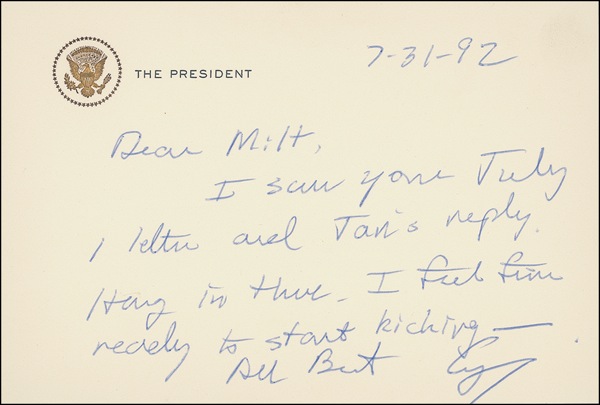 THE PRESIDENT
7-31-92
Dear Milt,
I saw your July
1 letter and Jan's reply.
Hang in there - I feel fine
ready to start kicking —
All Best